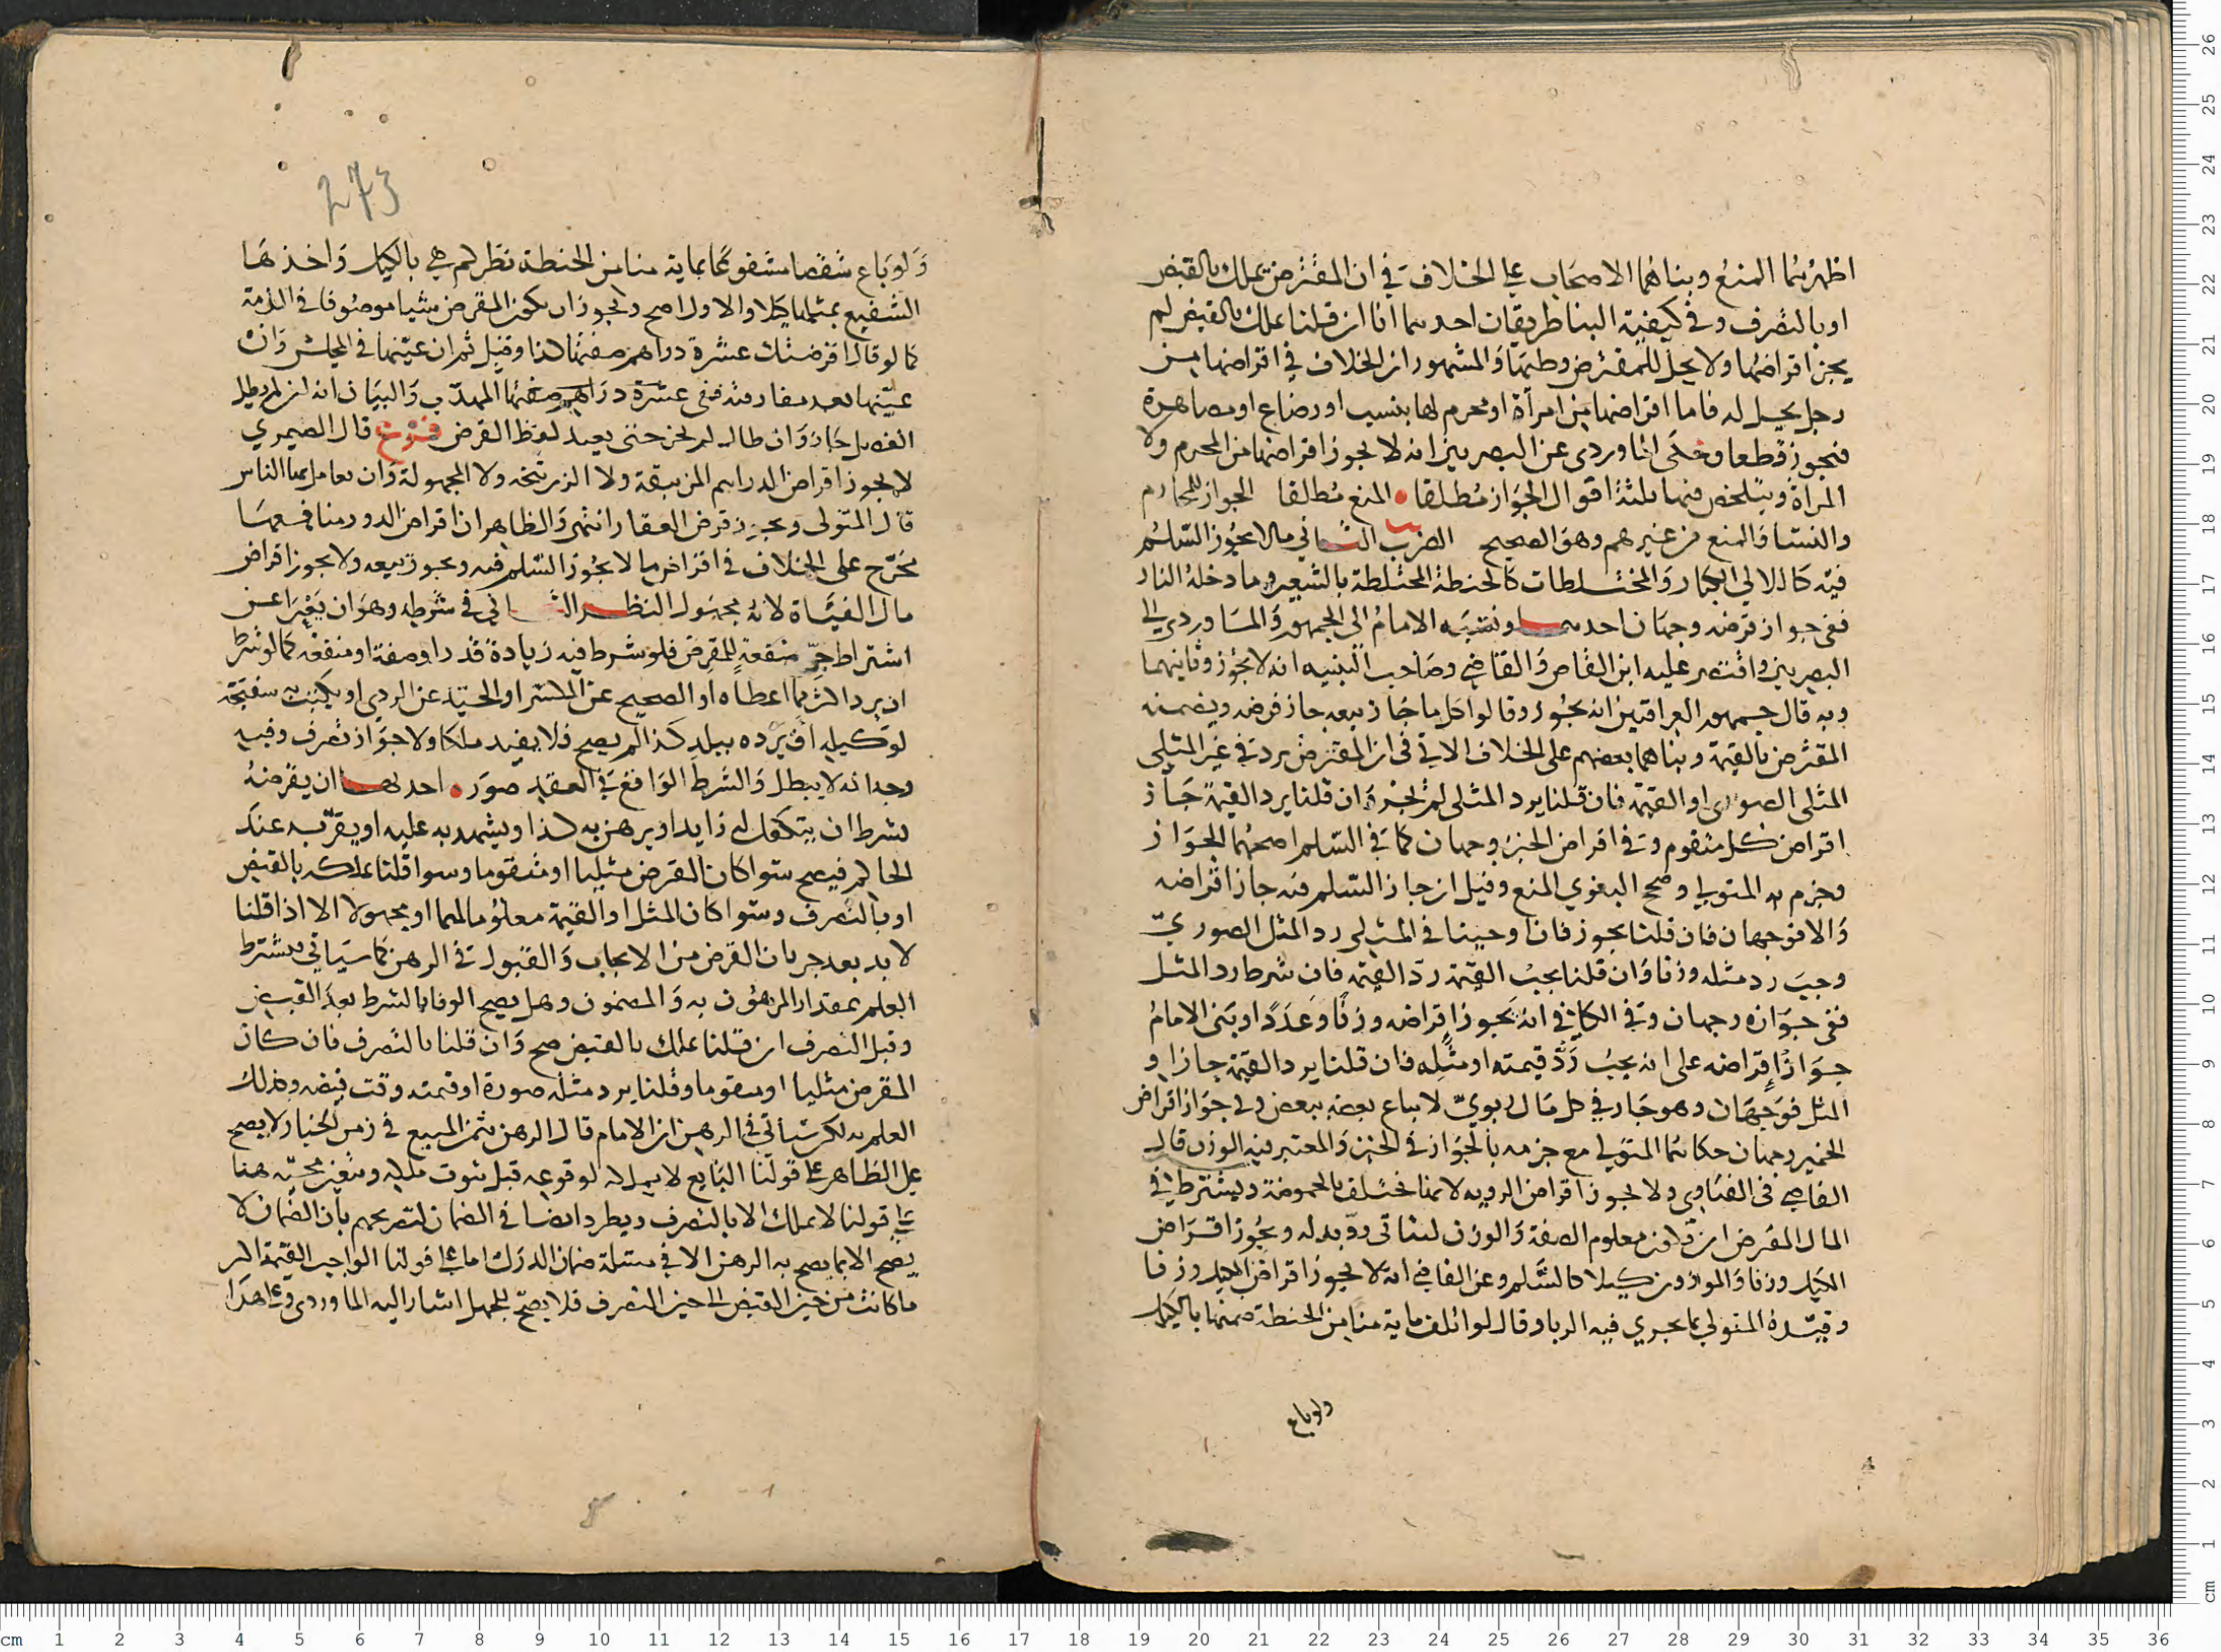 اظهرهما المنع وبناهما الاصحاب على الخلاف في ان المقترض يملك بالقبض
او بالتصرف وفي كيفية البنا طريقان احدهما انا ان قلنا يملك بالقبض لم
يجز اقراضها ولا يحل للمقترض وطيها والمشهور ان الخلاف في اقراضها من
رجل يحل له فاما اقراضها من امرأة او محرم لها بنسب او رضاع او مصاهرة
فيجوز قطعا وحكى الماوردي عن البصريين انه لا يجوز اقراضها من المحرم ولا
المراة ويتلخص فيها ثلثة اقوال الجواز مطلقا المنع مطلقا الجواز للمحارم
والنسا والمنع من غيرهم وهو الصحيح الضرب الثاني مالا يجوز السلم
فيه كاللالي الكبار والمختلطات كالحنطة المختلطة بالشعير وما دخله النار
ففي جواز قرضه وجهان احدهما ونسبه الامام الى الجمهور والماوردي الى
البصريين واقتصر عليه ابن القاص والقاضي وصاحب التنبيه انه لا يجوز وثانيهما
وبه قال جمهور العراقيين انه يجوز وقالوا كل ما جاز بيعه جاز قرضه ويضمنه
المقترض بالقيمة وبناهما بعضهم على الخلاف الاتي في ان المقترض يرد في غير المثلي
المثل الصوري او القيمة فان قلنا يرد المثل لم يجز وان قلنا يرد القيمة جاز
اقراض كل متقوم وفي اقراض الخبز وجهان كما في السلم اصحهما الجواز
وجزم به المتولي وصحح البغوي المنع وقيل ان جاز السلم فيه جاز اقراضه
والا فوجهان فان قلنا يجوز فان اوجبنا في المتقوم رد المثل الصوري
وجب رد مثله وزنا وان قلنا يجب القيمة رد القيمة فان شرط رد المثل
ففي جوازه وجهان وفي الكافي انه يجوز اقراضه وزنا وعددا وبنى الامام
جواز اقراضه على انه يجب رد قيمته او مثله فان قلنا يرد القيمة جاز او
المثل فوجهان وهو جار في كل مال ربوي لا يباع بعضه ببعض وفي جواز اقراض
الخمير وجهان حكاهما المتولي مع جزمه بالجواز في الخبز والمعتبر فيه الوزن قال
القاضي في الفتاوي ولا يجوز اقراض الروبه لانها تختلف بالحموضة ويشترط في
المال المقرض ان يكون معلوم الصفة والوزن ليتاتى رد بدله ويجوز اقراض
المكيل وزنا والموزون كيلا كالسلم وعن القاضي انه لا يجوز اقراض المكيل وزنا
وقيده المتولي بما يجري فيه الربا وقال لو اتلف ماية منا من الحنطة ضمنها بالكيل
ولو باع
273
ولو باع شقصا مشفوعا بماية منا من الحنطة نظركم هي بالكيل واخذها
الشفيع بمثلها كيلا والاول اصح ويجوز ان يكون المقرض شيا موصوفا في الذمة
كما لو قال اقرضتك عشرة دراهم صفتها كذا وقبل ثم ان عينها في المجلس وان
عينها بعد مفارقته ففي عشرة دراهم صفتها المهذب والبيان انه ان لم يطل
الفصل جاز وان طال لم يجز حتى يعيد لفظ القرض فروع قال الصيمري
لا يجوز اقراض الدراهم المزيبقة ولا الزرنيخه ولا المجهولة وان تعامل بها الناس
قال المتولي ويجوز قرض العقار انتهى والظاهر ان اقراض الدور منافعها
يخرج على الخلاف في اقراض ما لا يجوز السلم فيه ويجوز بيعه ولا يجوز اقراض
ماء القناة لانه مجهول النظر الثاني في شرطه وهو ان يعرا عن
اشتراط جر منفعة للمقرض فلو شرط فيه زيادة قدر او صفة او منفعة كما لو شرط
ان يرد اكثر مما اعطاه او الصحيح عن المكسر او الجيد عن الردي او يكتب به سفتجة
لوكيله او يرده ببلد كذا لم يصح فلا يفيد ملكا ولا جواز تصرف وفيه
وجه انه لا يبطل والشرط الواقع في العقد صور احدها ان يقرضه
بشرط ان يتكفل له زايد او يرهن به كذا ويشهد به عليه او يقر به عند
الحاكم فيصح سوا كان القرض مثليا او متقوما وسوا قلنا يملكه بالقبض
او بالتصرف وسوا كان المثل او القيمة معلوما لهما او مجهولا الا اذا قلنا
لا بد بعد جريان القرض من الايجاب والقبول في الرهن كما سياتي فيشترط
العلم بمقدار المرهون به والمضمون وهل يصح الوفا بالشرط بعد القبض
وقبل التصرف ان قلنا يملك بالقبض صح وان قلنا بالتصرف فان كان
المقرض مثليا او متقوما وقلنا يرد مثله صورة او قيمته وقت قبضه وكذلك
العلم به لكن سياتي في الرهن ان الامام قال الرهن بثمن المبيع في زمن الخيار لا يصح
على الظاهر على قولنا البايع لا يملكه لوقوعه قبل ثبوت ملكه وينبغي مجيه هنا
على قولنا لا يملك الا بالتصرف ويطرد ايضا في الضمان لتصريحهم بأن الضمان لا
يصح الا بما يصح به الرهن الا في مسئلة ضمان الدرك اما على قولنا الواجب القيمة اكثر
ما كانت من حين القبض الى حين التصرف فلا يصح للجهل اشار اليه الماوردي وعلى هذا